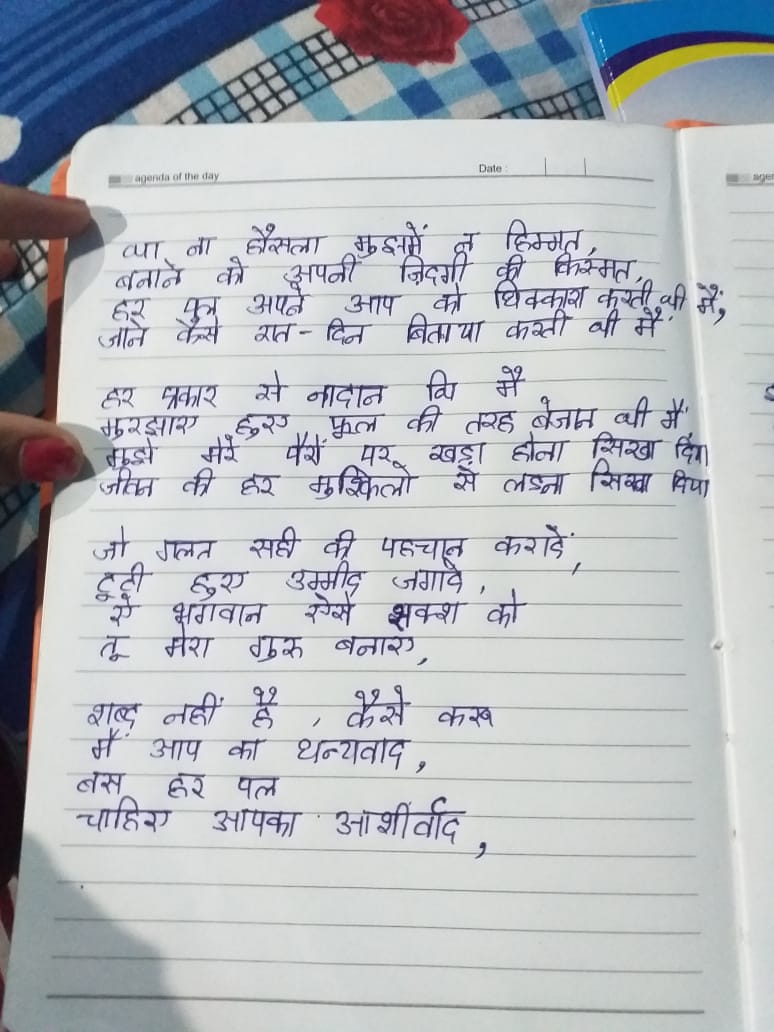 agenda of the day
Date :
था ना हौसला मुझमें न हिम्मत,
बनाने को अपनी ज़िंदगी की किस्मत,
हर अपने आप को धिक्कारा करती थी मैं,
जाने कैसे रात-दिन बिताया करती थी मैं
हर प्रकार से नादान थि मैं
मुरझाए हुए फूल की तरह बेजान थी मैं
मुझे मेरे पैरों पर खड़ा होना सिखा दिया
जीवन की हर मुश्किलो से लड़ना सिखा दिया
जो गलत सही की पहचान करादें,
टूटी हुए उम्मीद जगादे,
ऐ भगवान ऐसे शक्श को
तू मेरा गुरु बनाए,
शब्द नहीं है, कैसे करू
मैं आप का धन्यवाद,
बस हर पल
चाहिए आपका आशीर्वाद,